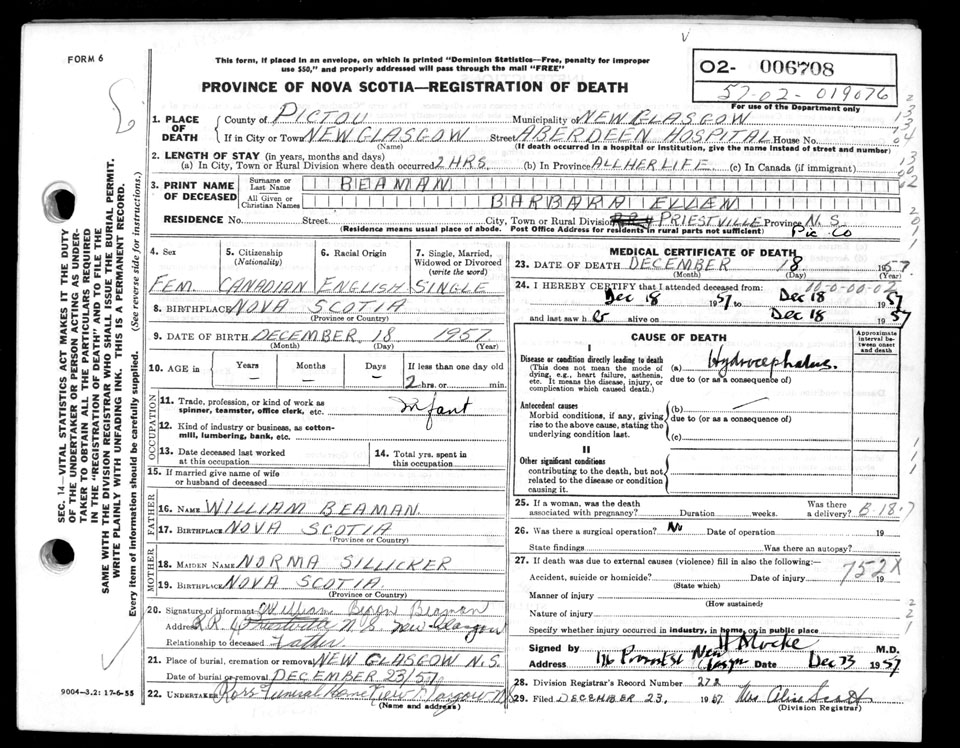 FORM 6
This form, if placed in an envelope, on which is printed "Dominion Statistics—Free, penalty for improper
use $50," and properly addressed will pass through the mail "FREE"
PROVINCE OF NOVA SCOTIA—REGISTRATION OF DEATH
02- 006708
57-02-019076
For use of the Department only
1. PLACE OF DEATH
County of PICTOU Municipality of NEW GLASGOW
If in City or Town NEW GLASGOW Street ABERDEEN HOSPITAL House No.
(Name) (If death occurred in a hospital or institution, give the name instead of street and number)
2. LENGTH OF STAY (in years, months and days)
(a) In City, Town or Rural Division where death occurred 2 HRS. (b) In Province ALL HER LIFE (c) In Canada (if immigrant)
3. PRINT NAME OF DECEASED
Surname or Last Name BEAMAN
All Given or Christian Names BARBARA ELLEN
RESIDENCE No. Street City, Town or Rural Division PRIESTVILLE Province N.S.
(Residence means usual place of abode. Post Office Address for residents in rural parts not sufficient) Pic. Co
4. Sex 5. Citizenship (Nationality) 6. Racial Origin 7. Single, Married, Widowed or Divorced (write the word)
FEM. CANADIAN ENGLISH SINGLE
8. BIRTHPLACE NOVA SCOTIA
(Province or Country)
9. DATE OF BIRTH DECEMBER 18 1957
(Month) (Day) (Year)
10. AGE in Years Months Days If less than one day old
— — — 2 hrs. or min.
OCCUPATION
11. Trade, profession, or kind of work as
spinner, teamster, office clerk, etc. Infant
12. Kind of industry or business, as cotton-
mill, lumbering, bank, etc.
13. Date deceased last worked at this occupation
14. Total yrs. spent in this occupation
15. If married give name of wife
or husband of deceased
FATHER
16. NAME WILLIAM BEAMAN
17. BIRTHPLACE NOVA SCOTIA
(Province or Country)
MOTHER
18. MAIDEN NAME NORMA SILLICKER
19. BIRTHPLACE NOVA SCOTIA
(Province or Country)
20. Signature of informant William Beaman
Address R.R. 4 N.S. New Glasgow
Relationship to deceased Father
21. Place of burial, cremation or removal NEW GLASGOW N.S.
Date of burial or removal DECEMBER 23/57
22. Undertaker Ross Funeral Home New Glasgow N.S.
(Name and address)
9004—3.2: 17-6-55
MEDICAL CERTIFICATE OF DEATH
23. DATE OF DEATH DECEMBER 18 1957
(Month) (Day) (Year)
24. I HEREBY CERTIFY that I attended deceased from:
Dec 18 1957 to Dec 18 1957
and last saw h er alive on Dec 18 1957
CAUSE OF DEATH
Approximate interval between onset and death
I
Disease or condition directly leading to death
(This does not mean the mode of
dying, e.g., heart failure, asthenia,
etc. It means the disease, injury, or
complication which caused death.)
(a) Hydrocephalus
due to (or as a consequence of)
Antecedent causes
Morbid conditions, if any, giving
rise to the above cause, stating the
underlying condition last.
(b) —
due to (or as a consequence of)
(c)
II
Other significant conditions
contributing to the death, but not
related to the disease or condition
causing it.
25. If a woman, was the death
associated with pregnancy? Duration weeks. Was there a delivery?
26. Was there a surgical operation? No Date of operation 19
State findings Was there an autopsy?
27. If death was due to external causes (violence) fill in also the following:—
752X
Accident, suicide or homicide? Date of injury 19
(State which)
Manner of injury
(How sustained)
Nature of injury
Specify whether injury occurred in industry, in home, or in public place
Signed by M.D.
Address New Date Dec 23 1957
28. Division Registrar's Record Number 272
29. Filed DECEMBER 23, 1957 Mrs Alice
(Division Registrar)
SEC. 14—VITAL STATISTICS ACT MAKES IT THE DUTY
OF THE UNDERTAKER OR PERSON ACTING AS UNDER-
TAKER TO OBTAIN ALL THE PARTICULARS REQUIRED
IN THE "REGISTRATION OF DEATH" AND TO FILE THE
SAME WITH THE DIVISION REGISTRAR WHO SHALL ISSUE THE BURIAL PERMIT.
WRITE PLAINLY WITH UNFADING INK. THIS IS A PERMANENT RECORD.
Every item of information should be carefully supplied. (See reverse side for instructions.)